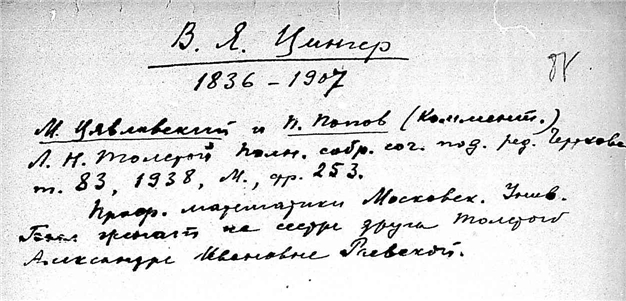 В. Я. Цингер
1836 – 1907
М. Цявлавский и П. Попов (Коммент.)
Л. Н. Толстой Полн. собр. соч. под. ред. Черткова
т. 83, 1938, М., стр. 253.
Проф. математики Московск. Унив.
Был женат на сестре друга Толстого
Александре Ивановне Раевской.